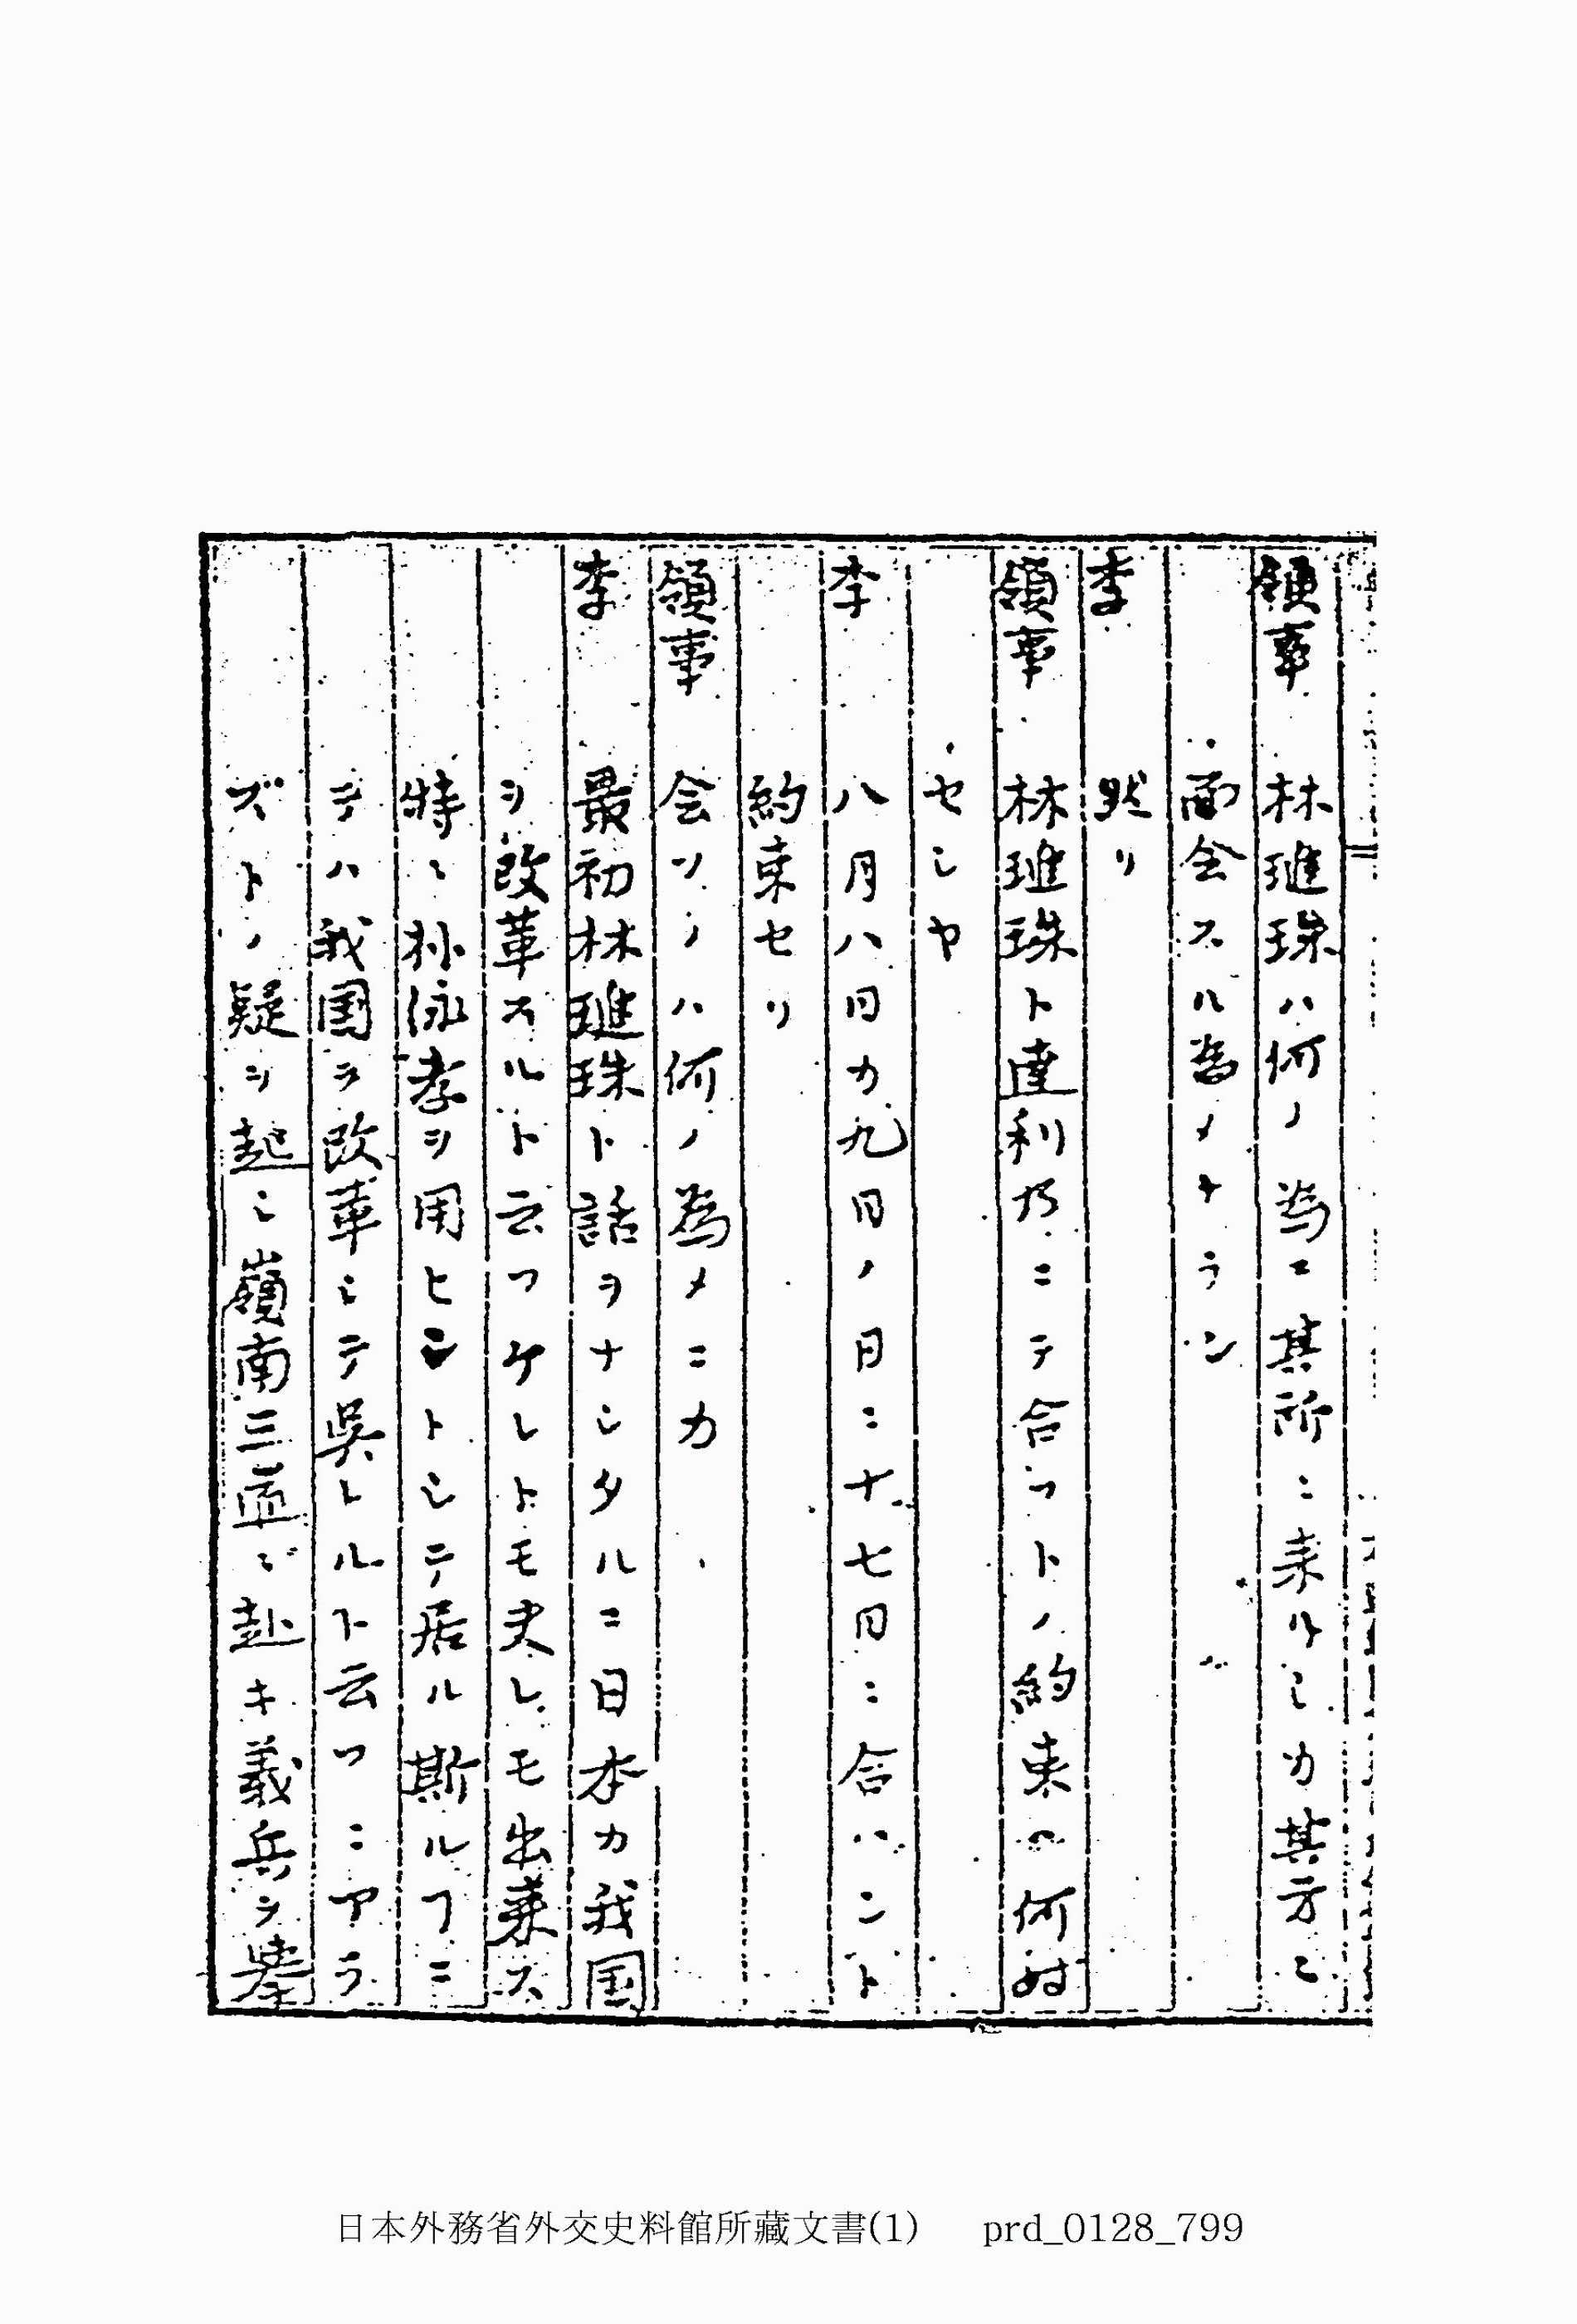 領事　林璡珠ハ何ノ為ニ其所ニ来ルシカ其方ト
面会スル為メナラン
李　然リ
領事　林璡珠ト達利乃ニテ合フトノ約束ハ何時
セシヤ
李　八月八日カ九日ノ日ニ十七日ニ合ハント
約束セリ
領事　会フノハ何ノ為メニカ
李　最初林璡珠ト話ヲナシタルニ日本カ我国
ヲ改革スルト云フケレトモ夫レモ出来ス
特ニ朴泳孝ヲ用ヒントシテ居ル斯ルフニ
テハ我国ヲ改革シテ呉レルト云フニアラ
ズトノ疑ヲ起シ嶺南三道ニ赴キ義兵ヲ挙
日本外務省外交史料館所藏文書(1)　prd_0128_799